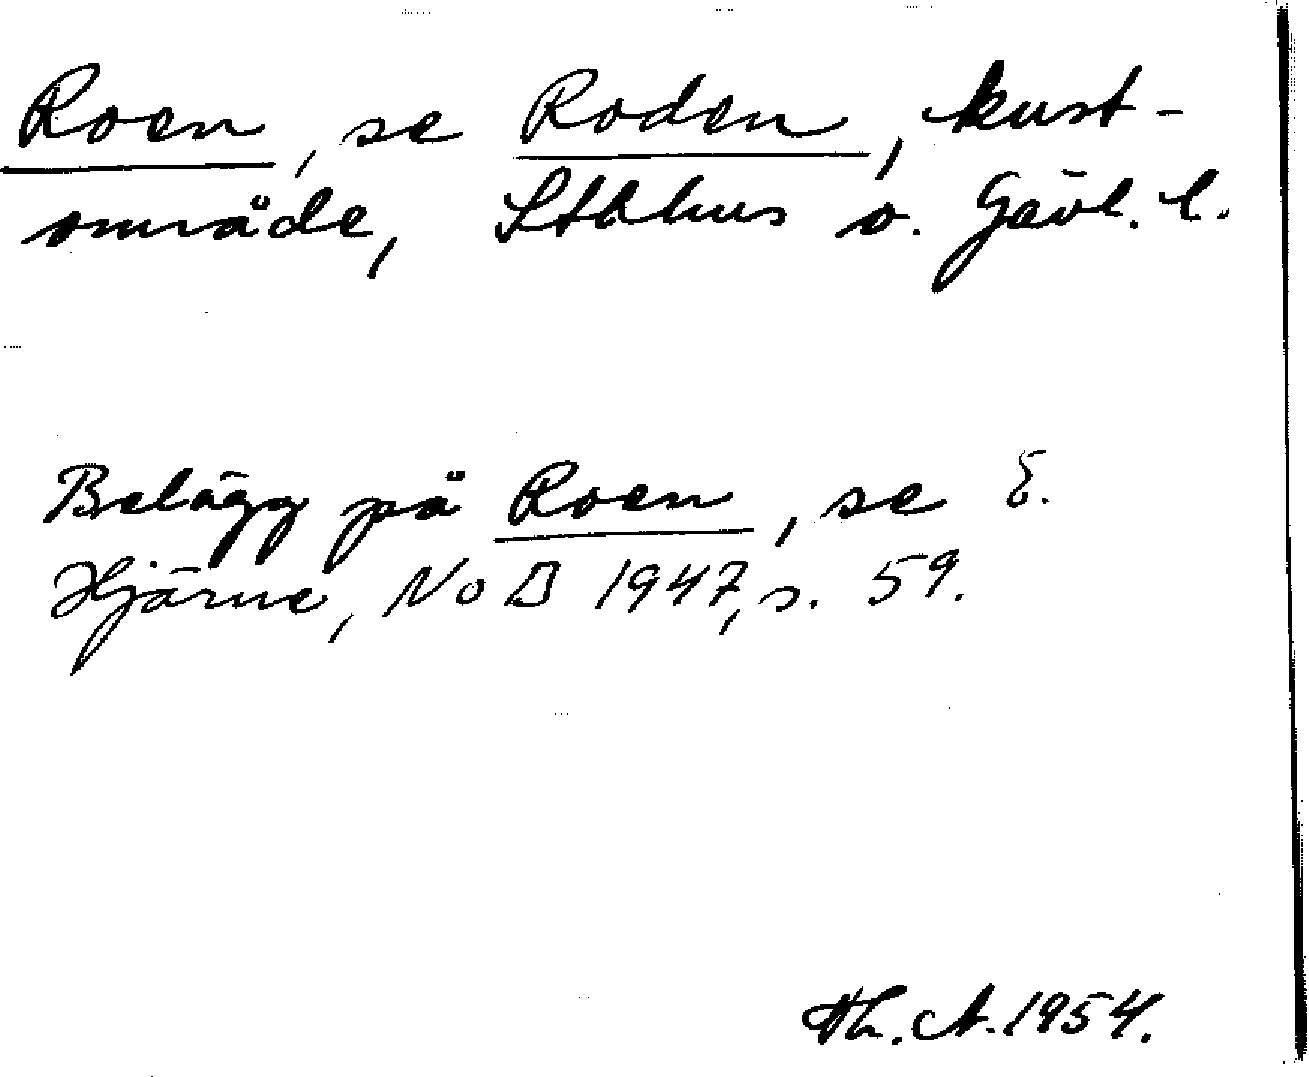 Roen, se Roden, kust-
område, Sthlms o. Gävl. l.
Belägg på Roen, se E.
Hjärne, NoB 1947, s. 59.
Th. A. 1954.